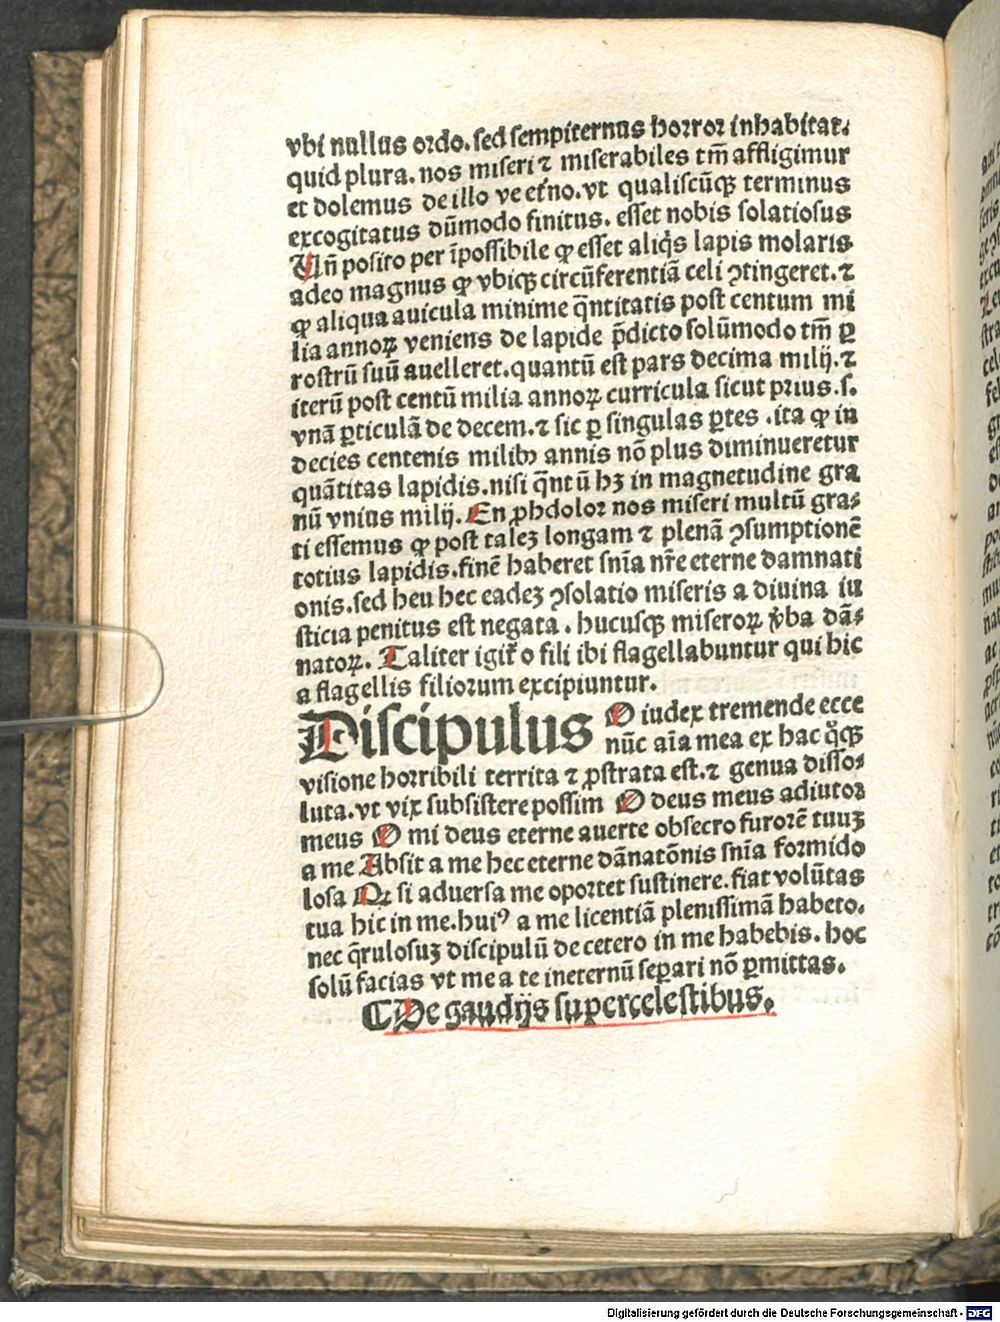 vbi nullus ordo. sed sempiternus horror inhabitat.
quid plura. nos miseri ⁊ miserabiles tm̄ affligimur
et dolemus de illo ve et̃no. vt qualiscūqꝫ terminus
excogitatus dūmodo finitus. esset nobis solatiosus
Uñ posito per īpossibile ꝙ esset aliq̃s lapis molaris
adeo magnus ꝙ vbicqꝫ circūferentiã celi ꝯtingeret. ⁊
ꝙ aliqua auicula minime q̃ntitatis post centum mi
lia annoꝝ veniens de lapide p̄dicto solūmodo tm̄ ꝑ
rostrū suū auelleret. quantū est pars decima milij. ⁊
iterū post centū milia annoꝝ curricula sicut prius. s.
vnã ꝑticulã de decem. ⁊ sic ꝑ singulas ꝑtes . ita ꝙ in
decies centenis milibꝰ annis nō plus diminueretur
quãtitas lapidis. nisi q̃ntū hꝫ in magnetudine gra
nū vnius milij. En ꝓhdolor nos miseri multū gra⸗
ti essemus ꝙ post taleꝫ longam ⁊ plenã ꝯsumptionē
totius lapidis. finē haberet sn̄ia nr̄e eterne damnati
onis. sed heu hec eadeꝫ ꝯsolatio miseris a diuina iu
sticia penitus est negata . hucusqꝫ miseroꝝ v̾ba dã⸗
natoꝝ. Taliter igit̃ o fili ibi flagellabuntur qui hic
a flagellis filiorum excipiuntur.
Discipulus O iudex tremende ecce
nūc aīa mea ex hac q̊cqꝫ
visione horribili territa ⁊ ꝓstrata est. ⁊ genua disso⸗
luta. vt vix subsistere possim O deus meus adiutor
meus O mi deus eterne auerte obsecro furorē tuuꝫ
a me Absit a me hec eterne dãnatōnis sn̄ia formido
losa Qꝛ si aduersa me oportet sustinere. fiat volūtas
tua hic in me. huiꝰ a me licentiã plenissimã habeto.
nec q̃rulosuꝫ discipulū de cetero in me habebis. hoc
solū facias vt me a te ineternū seꝑari nō ꝑmittas.
⸿ De gaudijs supercelestibus.
Digitalisierung gefördert durch die Deutsche Forschungsgemeinschaft - DFG